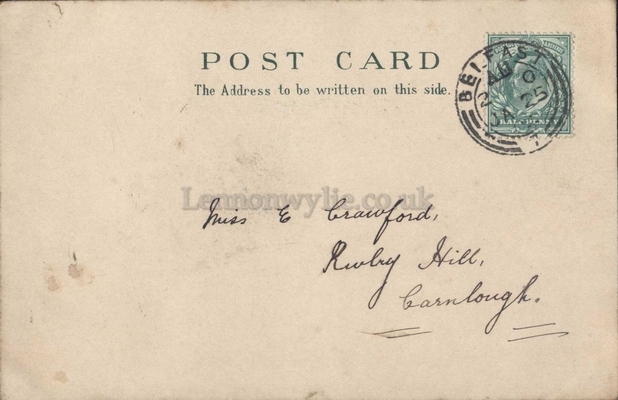 POST CARD
The Address to be written on this side.
BELFAST
JA 25
HALFPENNY
Lennonwylie.co.uk
Miss E Crawford,
Hill,
Carnlough.